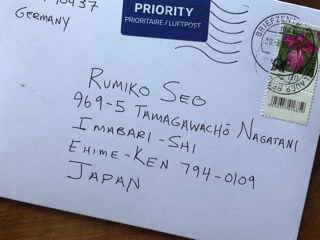 10437
GERMANY
PRIORITY
PRIORITAIRE / LUFTPOST
RUMIKO SEO
969-5 TAMAGAWACHŌ NAGATANI
IMABARI-SHI
EHIME-KEN 794-0109
JAPAN